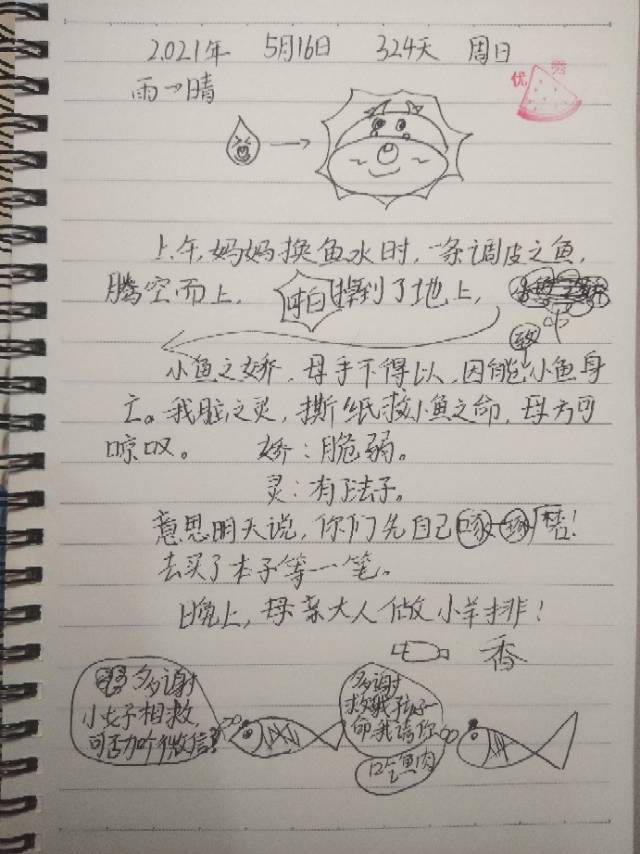 2021年 5月16日 324天 周日
优秀
雨→晴
上午,妈妈换鱼水时,一条调皮之鱼,
腾空而上,啪 摔到了地上,
致
小鱼之娇,母手不得以,因能 小鱼身
亡。我脏之灵,撕纸救小鱼之命,母方可
惊叹。 娇:脆弱。
灵:有了法子。
意思明天说,你们先自己啄一琢 磨!
去买了本子等一笔。
晚上,母亲大人做小羊排!
香
多谢
小女子相救,
可否加个微信!
多谢
救我孩子一
命,我请你
吃鱼肉